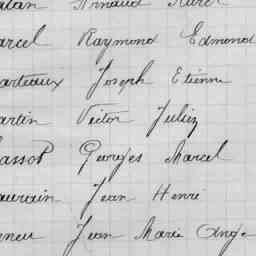 Arnaud
arcel Raymond Edmond
arteaux Joseph Etienne
artin Victor Julien
assot Georges Marcel
Jean Henri
Jean Marie Ange